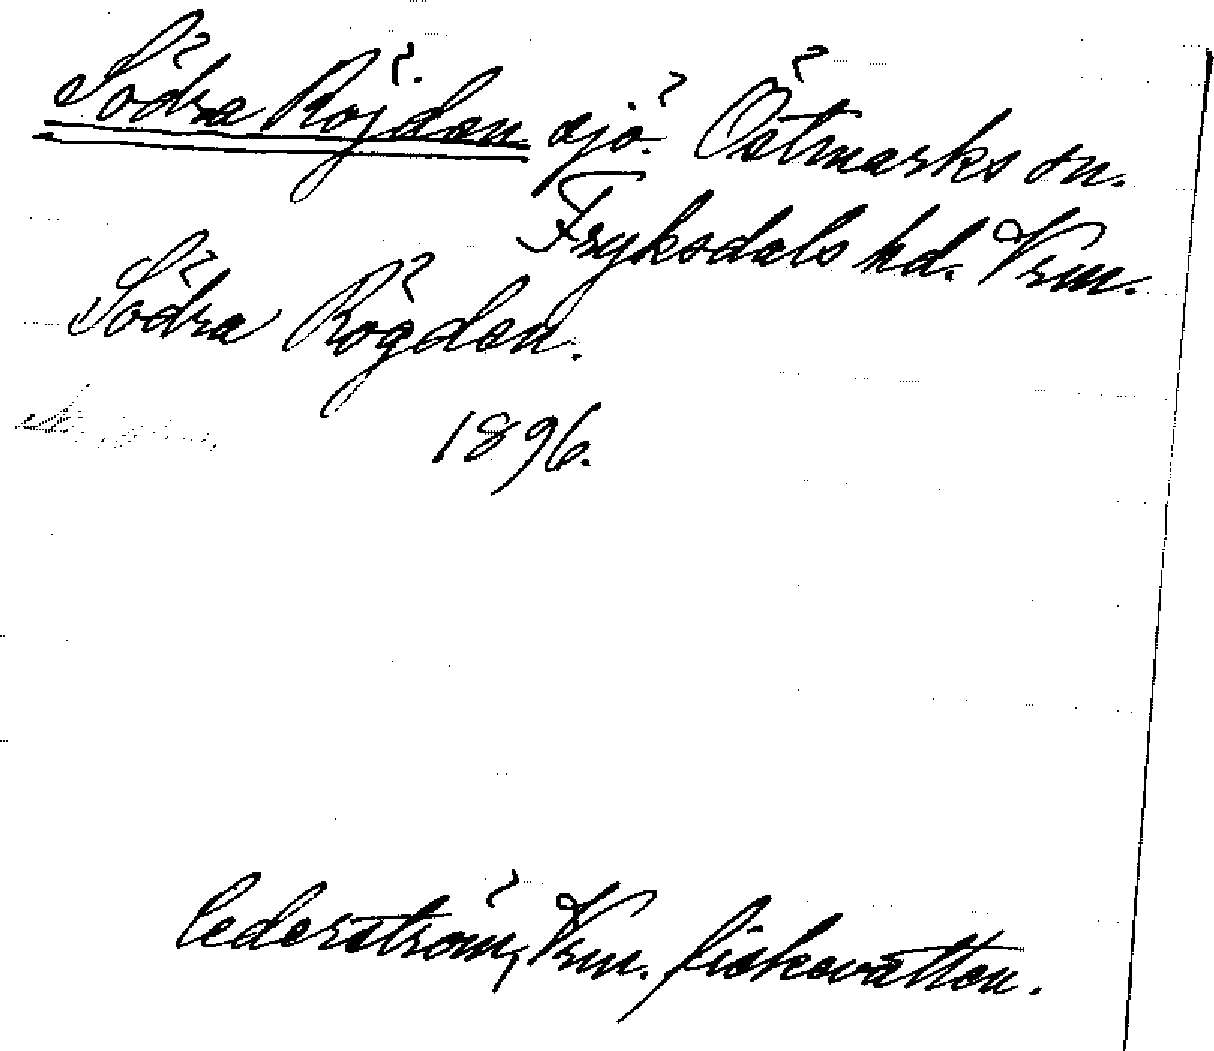 Södra Röjden sjö. Östmarks sn.
Fryksdals hd. Vrm.
Södra Rögden.
1896.
Cederström, Vrm. fiskevatten.